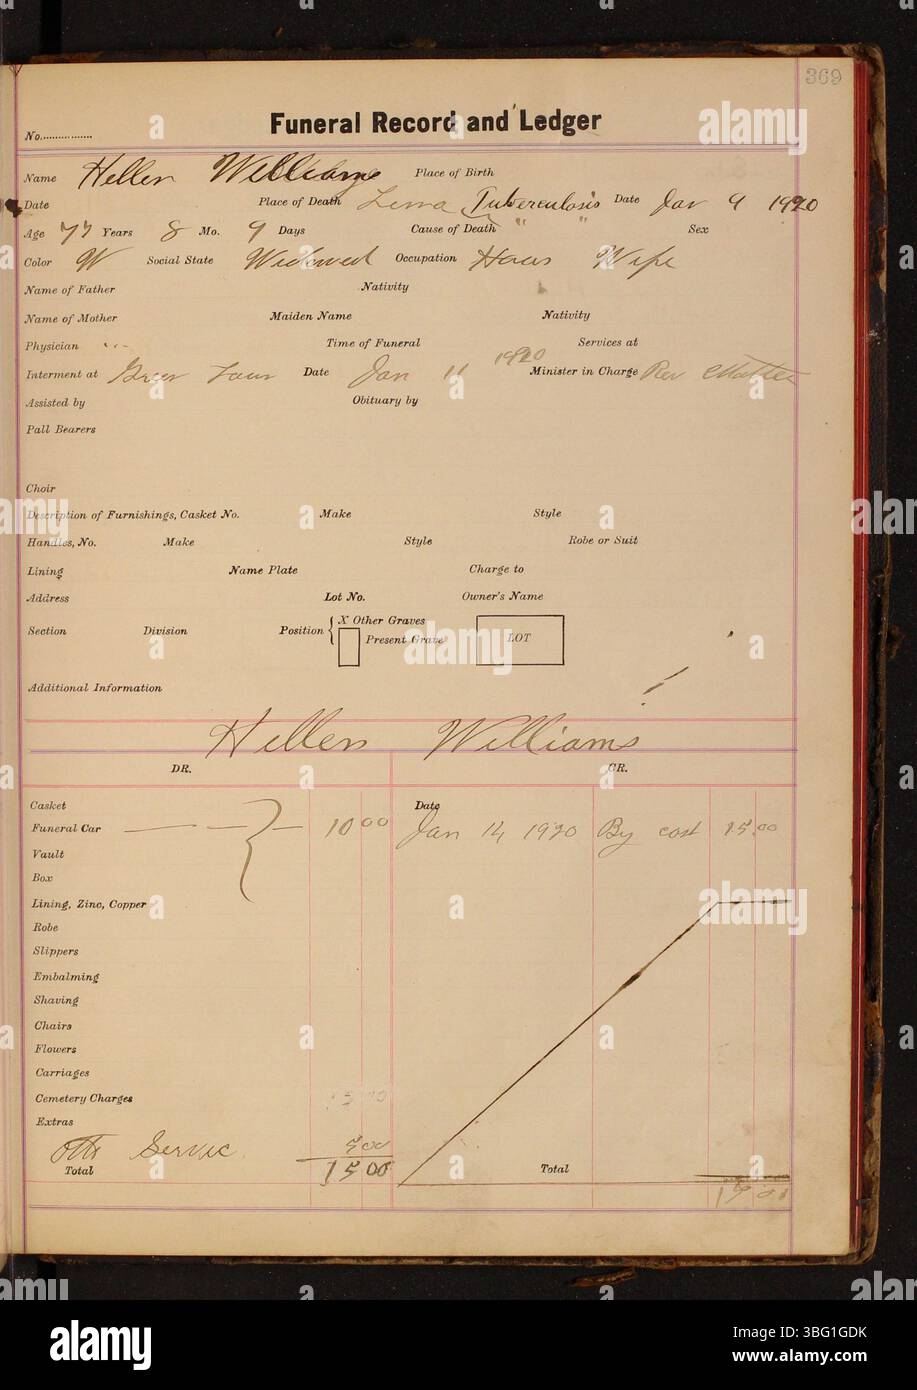 369
No. Funeral Record and Ledger
Name Hellen Williams Place of Birth
Date Place of Death Lima Tuberculosis Date Jan 9 1920
Age 77 Years 8 Mo. 9 Days Cause of Death " " Sex
Color W Social State Widowed Occupation Hous Wife
Name of Father Nativity
Name of Mother Maiden Name Nativity
Physician Time of Funeral Services at
Interment at Date Jan 11 1920 Minister in Charge Rev
Assisted by Obituary by
Pall Bearers
Choir
Description of Furnishings, Casket No. Make Style
Handles, No. Make Style Robe or Suit
Lining Name Plate Charge to
Address Lot No. Owner's Name
Section Division Position { X Other Graves
Present Grave LOT
Additional Information
Hellen Williams
DR. CR.
Casket Date
Funeral Car 10 00 Jan 14 1920 By cost 15.00
Vault
Box
Lining, Zinc, Copper
Robe
Slippers
Embalming
Shaving
Chairs
Flowers
Carriages
Cemetery Charges
Extras
Servic 5 00
Total 15 00 Total
alamy
Image ID: 3BG1GDK
www.alamy.com